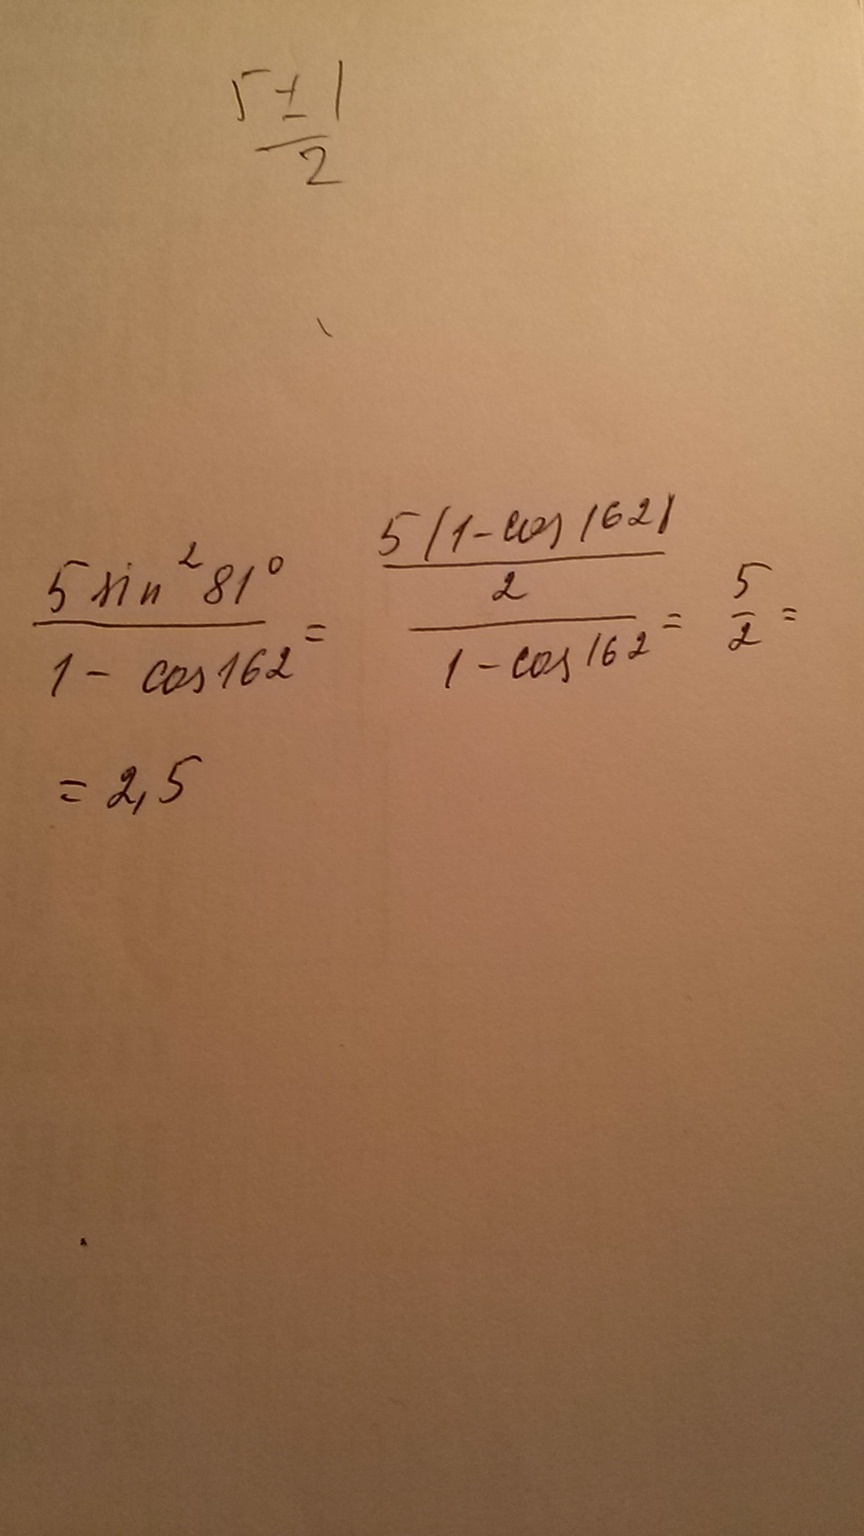 5 ± 1
2
5 sin²81° / 1 - cos162 = 5(1-cos162) / 2 / 1-cos162 = 5/2 =
= 2,5